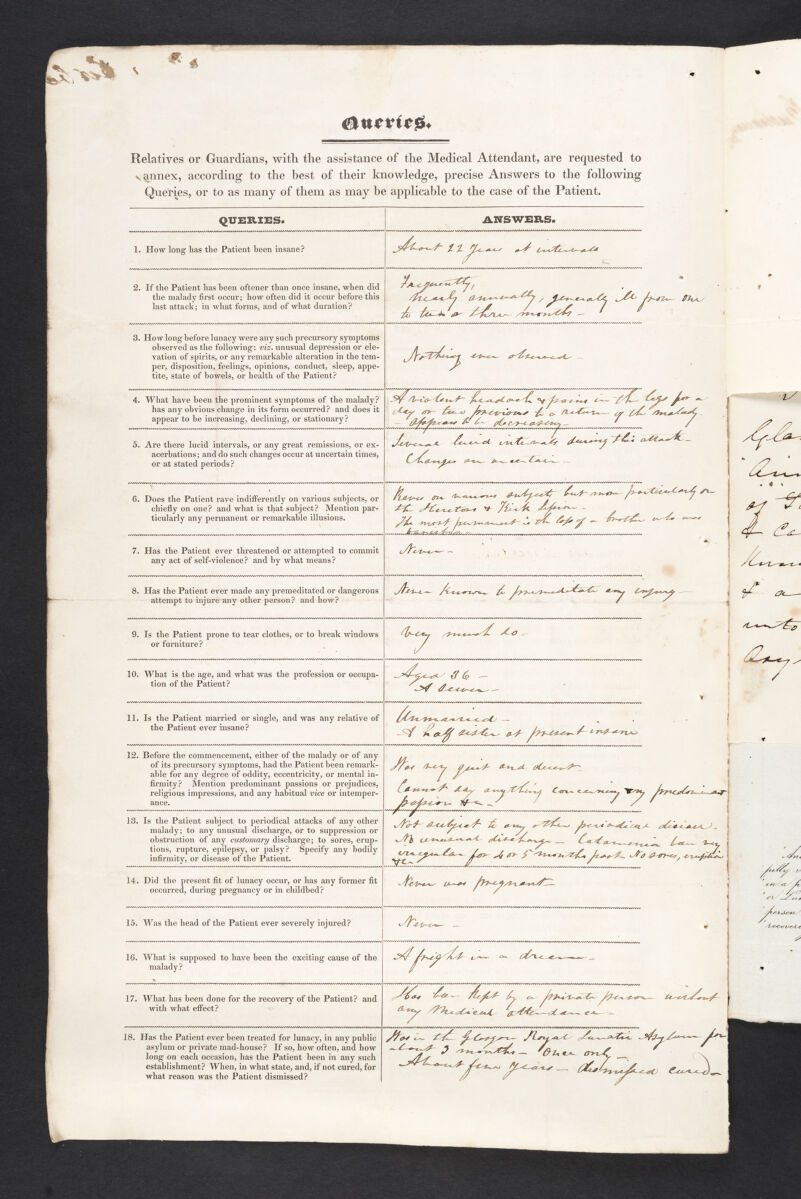 Queries.
Relatives or Guardians, with the assistance of the Medical Attendant, are requested to
annex, according to the best of their knowledge, precise Answers to the following
Queries, or to as many of them as may be applicable to the case of the Patient.
QUERIES.
ANSWERS.
1. How long has the Patient been insane?
About 22 Years at intervals
2. If the Patient has been oftener than once insane, when did
the malady first occur; how often did it occur before this
last attack; in what forms, and of what duration?
Frequently,
nearly annually, generally ill from one
to two or three months –
3. How long before lunacy were any such precursory symptoms
observed as the following: viz. unusual depression or ele-
vation of spirits, or any remarkable alteration in the tem-
per, disposition, feelings, opinions, conduct, sleep, appe-
tite, state of bowels, or health of the Patient?
Nothing ever observed –
4. What have been the prominent symptoms of the malady?
has any obvious change in its form occurred? and does it
appear to be increasing, declining, or stationary?
A violent headach & pains in the legs for a
day or two previous to a return of the malady.
– appears to be decreasing –
5. Are there lucid intervals, or any great remissions, or ex-
acerbations; and do such changes occur at uncertain times,
or at stated periods?
Several lucid intervals during this attack –
Changes are uncertain –
6. Does the Patient rave indifferently on various subjects, or
chiefly on one? and what is that subject? Mention par-
ticularly any permanent or remarkable illusions.
Raves on various subjects but more particularly on
the Heretors & Kirk Session –
The most permanent is the loss of a brother who was
7. Has the Patient ever threatened or attempted to commit
any act of self-violence? and by what means?
Never –
8. Has the Patient ever made any premeditated or dangerous
attempt to injure any other person? and how?
Never known to premeditate any injury –
9. Is the Patient prone to tear clothes, or to break windows
or furniture?
Very much so –
10. What is the age, and what was the profession or occupa-
tion of the Patient?
Aged 36 –
A Sewer –
11. Is the Patient married or single, and was any relative of
the Patient ever insane?
Unmarried –
A half sister at present insane
12. Before the commencement, either of the malady or of any
of its precursory symptoms, had the Patient been remark-
able for any degree of oddity, eccentricity, or mental in-
firmity? Mention predominant passions or prejudices,
religious impressions, and any habitual vice or intemper-
ance.
Was very quiet and decent
Cannot say anything concerning any predominant
passion &c –
13. Is the Patient subject to periodical attacks of any other
malady; to any unusual discharge, or to suppression or
obstruction of any customary discharge; to sores, erup-
tions, rupture, epilepsy, or palsy? Specify any bodily
infirmity, or disease of the Patient.
Not subject to any other periodical disease.
No unusual discharge – Catamenia been very
irregular for 4 or 5 months past No sores, eruption
&c –
14. Did the present fit of lunacy occur, or has any former fit
occurred, during pregnancy or in childbed?
Never was pregnant –
15. Was the head of the Patient ever severely injured?
Never –
16. What is supposed to have been the exciting cause of the
malady?
A fright in a dream –
17. What has been done for the recovery of the Patient? and
with what effect?
Has been kept by a private person without
any Medical attendance –
18. Has the Patient ever been treated for lunacy, in any public
asylum or private mad-house? If so, how often, and how
long on each occasion, has the Patient been in any such
establishment? When, in what state, and, if not cured, for
what reason was the Patient dismissed?
Was in the Glasgow Royal Lunatic Asylum for
about 3 months – Once only –
About five Years – dismissed cured –